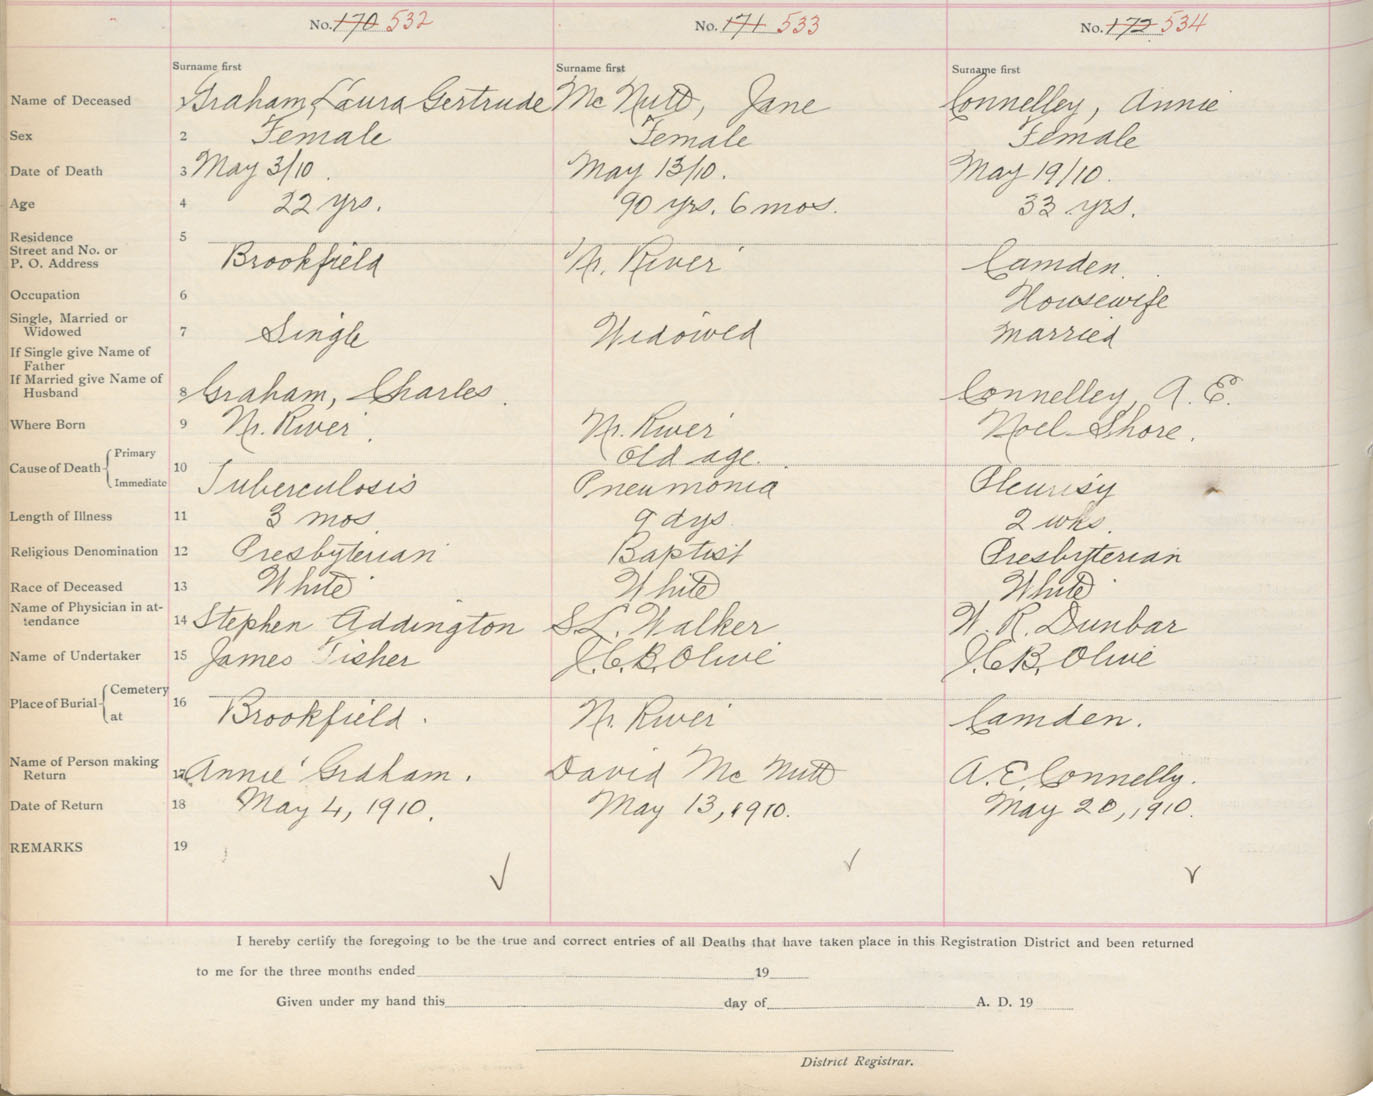 No. 170 532 No. 171 533 No. 172 534
Surname first Surname first Surname first
Name of Deceased 1 Graham, Laura Gertrude Mc Nutt, Jane Connelley, Annie
Sex 2 Female Female Female
Date of Death 3 May 3/10. May 13/10. May 19/10.
Age 4 22 yrs. 90 yrs. 6 mos. 33 yrs.
Residence 5
Street and No. or
P. O. Address Brookfield N. River Camden.
Occupation 6 Housewife
Single, Married or
Widowed 7 Single Widowed Married
If Single give Name of
Father
If Married give Name of
Husband 8 Graham, Charles. Connelley, A. E.
Where Born 9 N. River. N. River Noel Shore.
Cause of Death Primary 10 Old age.
Immediate Tuberculosis Pneumonia Pleurisy
Length of Illness 11 3 mos 9 dys 2 wks.
Religious Denomination 12 Presbyterian Baptist Presbyterian
Race of Deceased 13 White White White
Name of Physician in at-
tendance 14 Stephen Addington S.L. Walker W. R. Dunbar
Name of Undertaker 15 James Fisher J.C.B. Olive J.C.B. Olive
Place of Burial Cemetery 16
at Brookfield. N. River Camden.
Name of Person making
Return 17 Annie Graham. David Mc Nutt A. E. Connelly.
Date of Return 18 May 4, 1910. May 13, 1910. May 20, 1910.
REMARKS 19
I hereby certify the foregoing to be the true and correct entries of all Deaths that have taken place in this Registration District and been returned
to me for the three months ended 19
Given under my hand this day of A. D. 19
District Registrar.